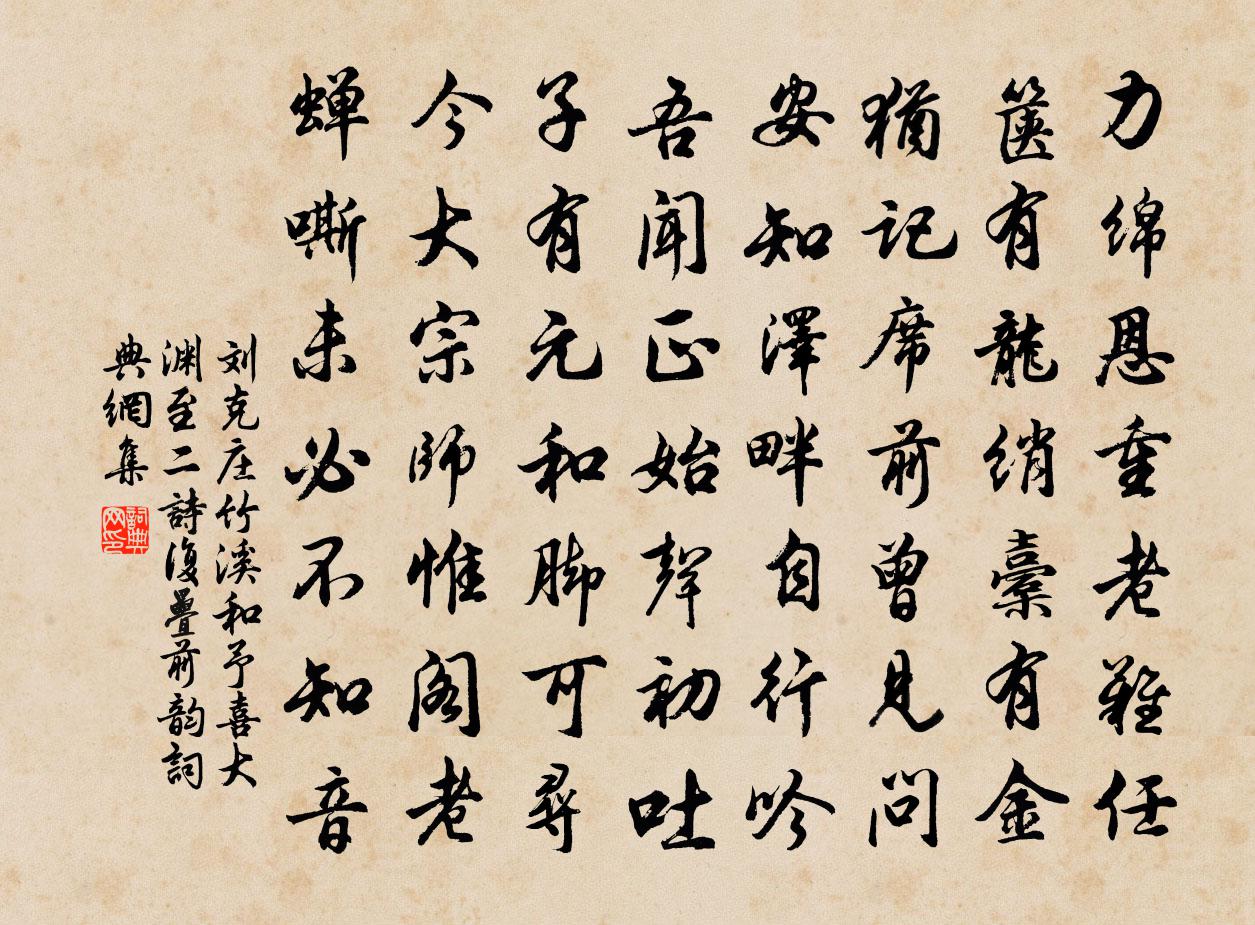 力绵恩重老难任
箧有龍绡橐有金
猶记席前曾見问
安知澤畔自行吟
吾闻正始聲初吐
子有元和脚可尋
今大宗師惟阁老
蝉嘶未必不知音
刘克庄竹溪和予喜大
渊至二詩復疊前韵詞
典網集
詞典网印